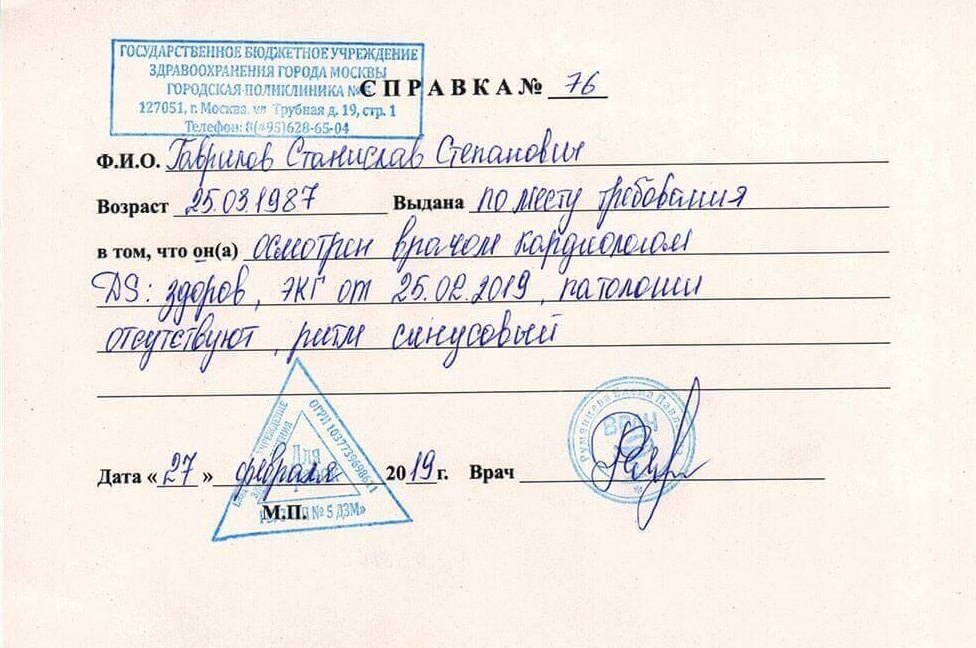 ГОСУДАРСТВЕННОЕ БЮДЖЕТНОЕ УЧРЕЖДЕНИЕ
ЗДРАВООХРАНЕНИЯ ГОРОДА МОСКВЫ
ГОРОДСКАЯ ПОЛИКЛИНИКА №
127051, г. Москва, ул. Трубная д. 19, стр. 1
Телефон: 8(495)628-65-04
СПРАВКА № 76
Ф.И.О. Гаврилов Станислав Степанович
Возраст 25.03.1987 Выдана по месту требования
в том, что он(а) осмотрен врачом кардиологом
DS: здоров, ЭКГ от 25.02.2019, патологии
отсутствуют, ритм синусовый
Дата «27» февраля 2019 г. Врач
М.П.
УЧРЕЖДЕНИЕ
ОГРН 1037739698621
Для
№ 5 ДЗМ»
Румянцева Елена
ВРАЧ